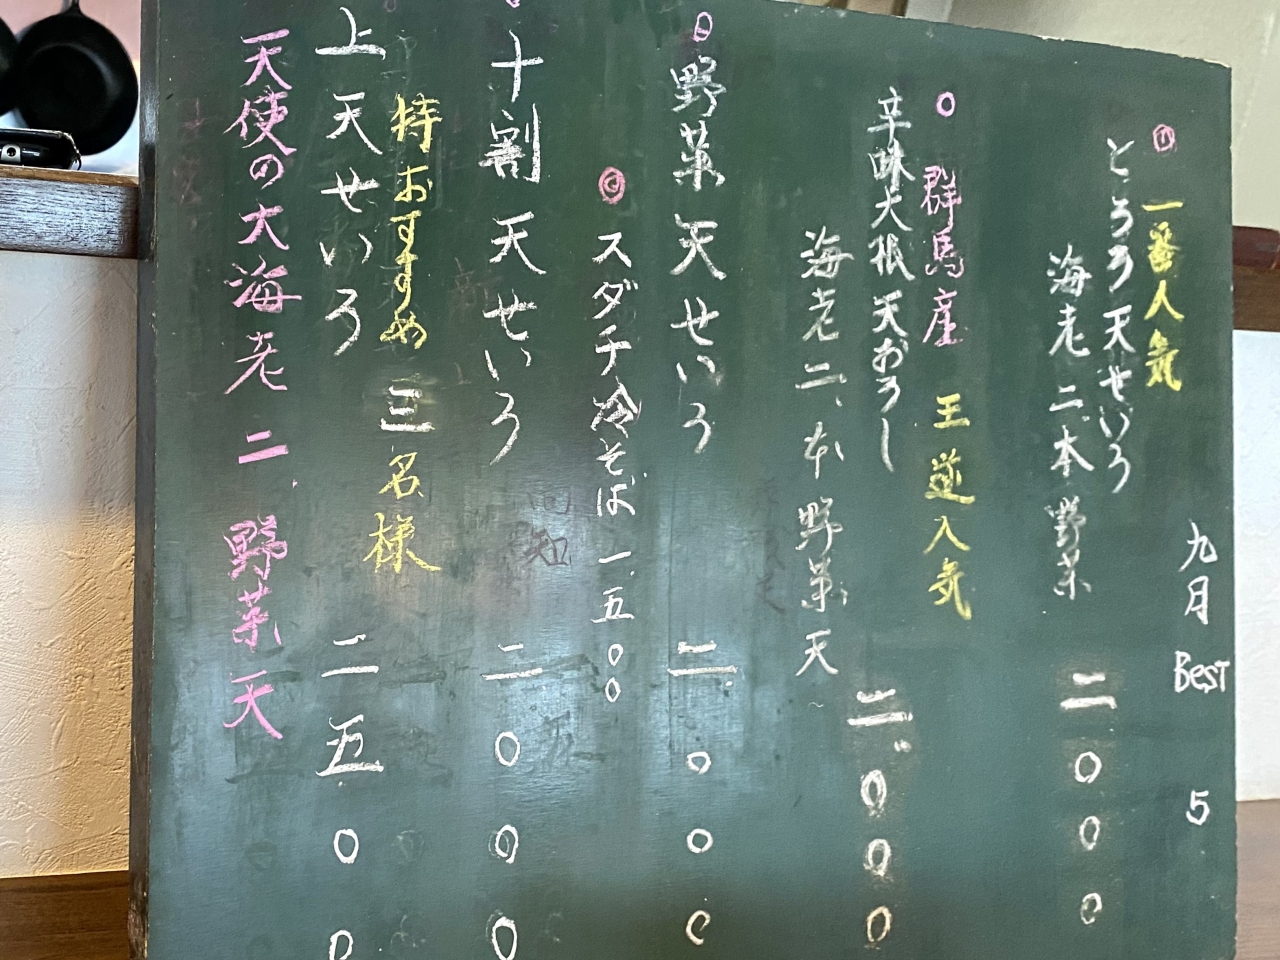 九月 BEST 5
一番人気
とろろ天せいろ
海老二本野菜 二〇〇〇
〇 群馬産 王道人気
辛味大根天おろし
海老二本野菜天 二〇〇〇
野菜天せいろ 二〇〇〇
スダチ冷そば 一五〇〇
十割天せいろ 二〇〇〇
特おすすめ 三名様
上天せいろ 二五〇〇
天使の大海老二 野菜天